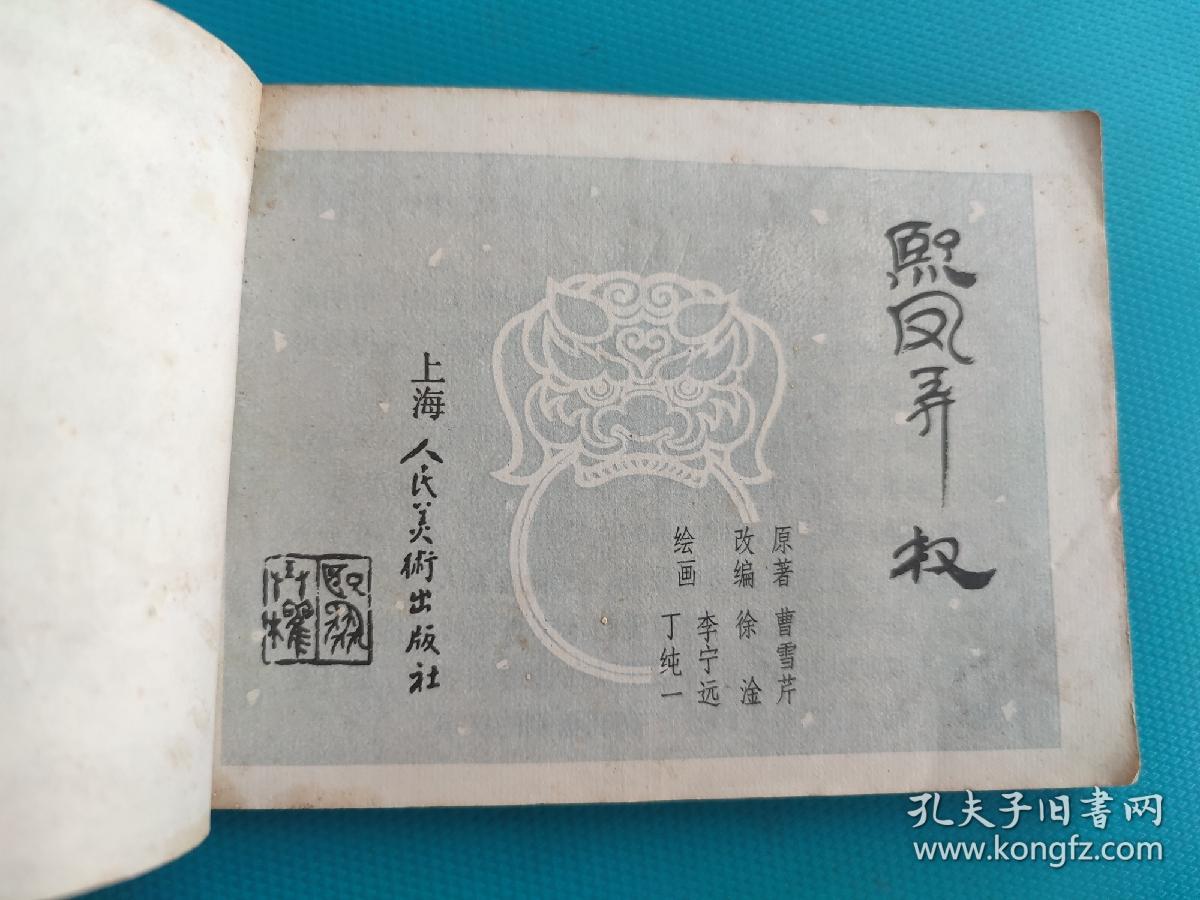 熙凤弄权
原著 曹雪芹
改编 徐淦
绘画 李宁远
丁纯一
上海人民美術出版社
孔夫子旧書网
www.kongfz.com